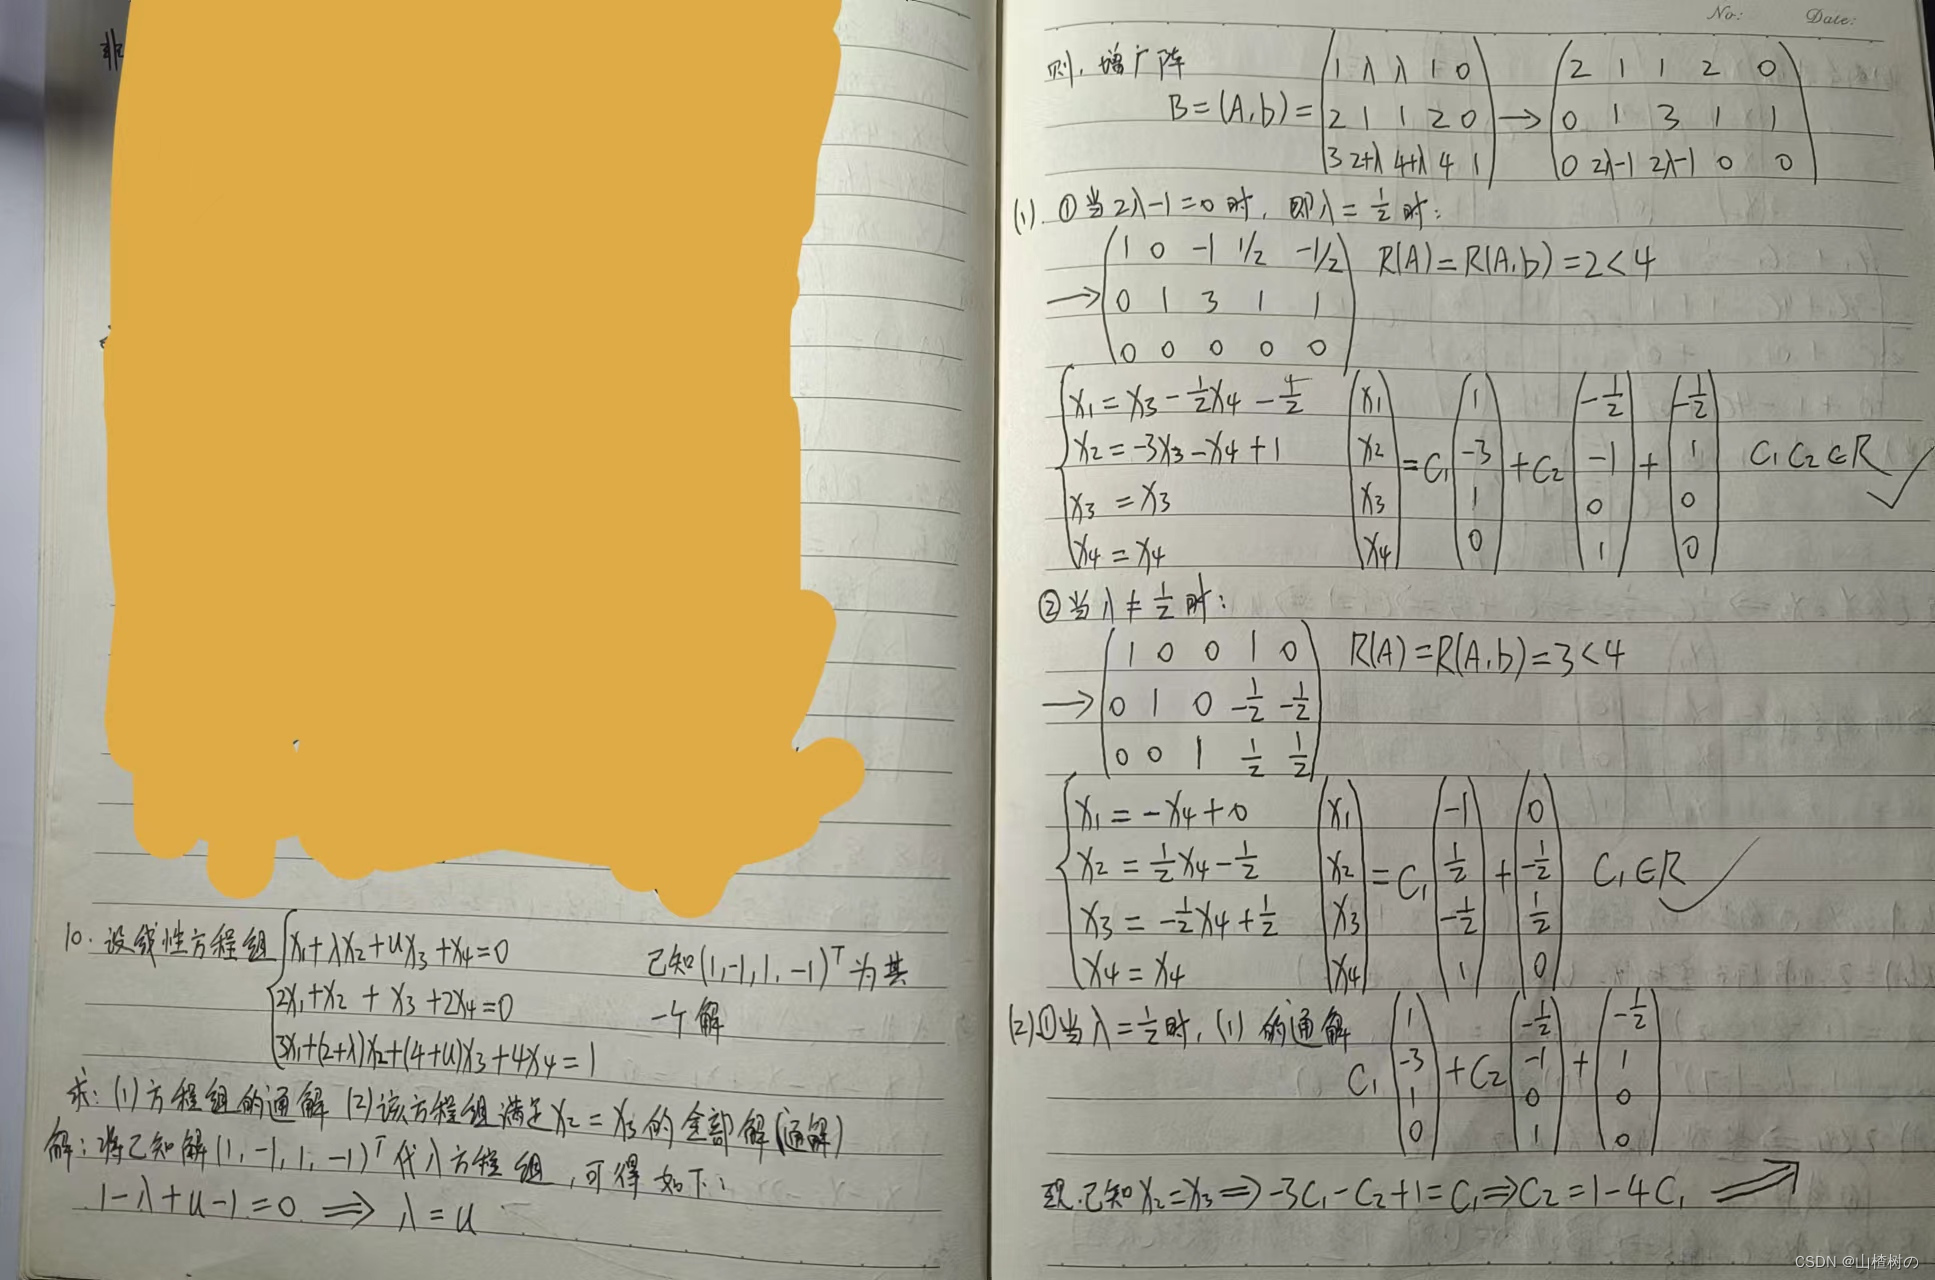 非
10. 设线性方程组 { x₁+λx₂+ux₃+x₄=0 已知(1,-1,1,-1)ᵀ为其
2x₁+x₂+x₃+2x₄=0 一个解
3x₁+(2+λ)x₂+(4+u)x₃+4x₄=1
求:(1)方程组的通解 (2)该方程组满足x₂=x₃的全部解(通解)
解:将已知解(1,-1,1,-1)ᵀ代入方程组,可得如下:
1-λ+u-1=0 ⟹ λ=u
No: Date:
则,增广阵
B=(A,b)= (1 λ λ 1 0; 2 1 1 2 0; 3 2+λ 4+λ 4 1) → (2 1 1 2 0; 0 1 3 1 1; 0 2λ-1 2λ-1 0 0)
(1) ①当2λ-1=0时,即λ=1/2时:
→ (1 0 -1 1/2 -1/2; 0 1 3 1 1; 0 0 0 0 0) R(A)=R(A,b)=2<4
{ x₁=x₃-1/2x₄-1/2
x₂=-3x₃-x₄+1
x₃=x₃
x₄=x₄
(x₁; x₂; x₃; x₄) = C₁(1; -3; 1; 0) + C₂(-1/2; -1; 0; 1) + (-1/2; 1; 0; 0) C₁C₂∈R ✓
②当λ≠1/2时:
→ (1 0 0 1 0; 0 1 0 -1/2 -1/2; 0 0 1 1/2 1/2) R(A)=R(A,b)=3<4
{ x₁=-x₄+0
x₂=1/2x₄-1/2
x₃=-1/2x₄+1/2
x₄=x₄
(x₁; x₂; x₃; x₄) = C₁(-1; 1/2; -1/2; 1) + (0; -1/2; 1/2; 0) C₁∈R ✓
(2)①当λ=1/2时,(1)的通解 C₁(1; -3; 1; 0) + C₂(-1/2; -1; 0; 1) + (-1/2; 1; 0; 0)
现已知x₂=x₃ ⟹ -3C₁-C₂+1=C₁ ⟹ C₂=1-4C₁ ⟹
CSDN @山楂树の